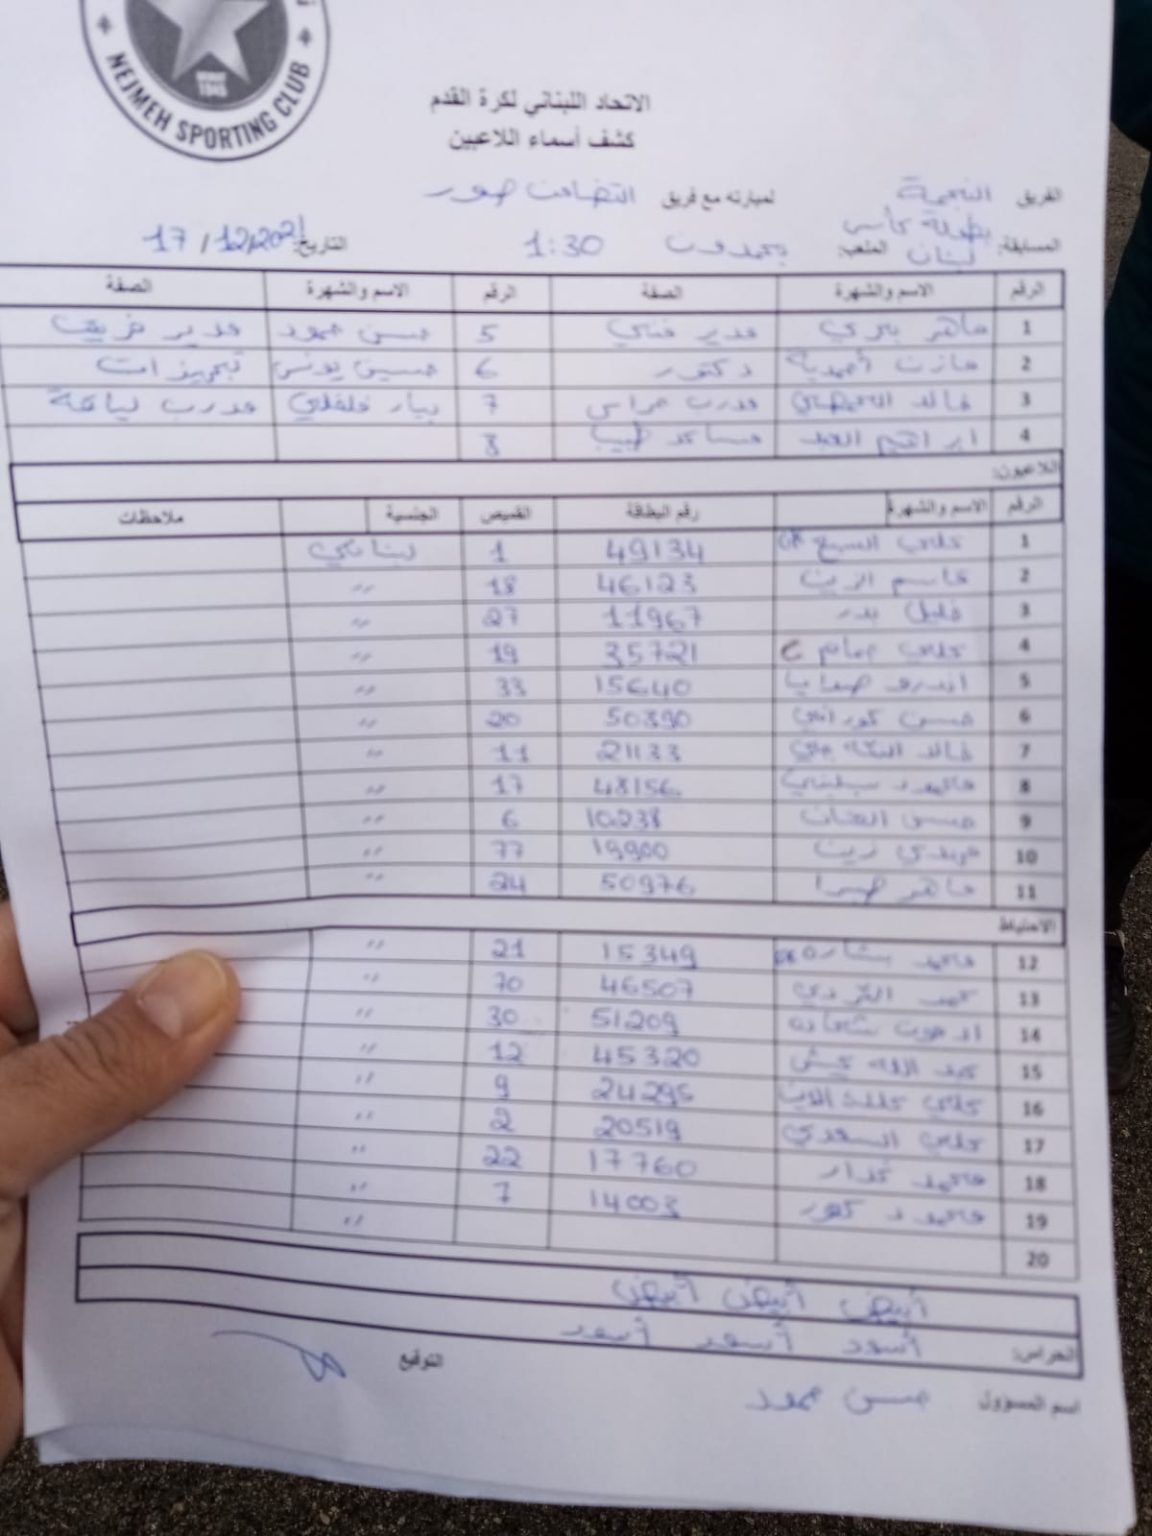 NEJMEH SPORTING CLUB
الاتحاد اللبناني لكرة القدم
كشف أسماء اللاعبين
الفريق النجمة لمبارته مع فريق التضامن صور
المسابقة: بطولة كأس لبنان الملعب: بحمدون 1:30 التاريخ: 17/12/2021
الرقم الاسم والشهرة الصفة الرقم الاسم والشهرة الصفة
1 ماهر بيري مدير فني 5 حسن حمود مدير فريق
2 مازن أحمدية دكتور 6 حسين يونس تجهيزات
3 خالد مدرب حراس 7 بيار مدرب لياقة
4 ابراهيم العبد مساعد طبيب 8
اللاعبون:
الرقم الاسم والشهرة رقم البطاقة القميص الجنسية ملاحظات
1 علي السبع 49134 1 لبناني
2 قاسم الزين 46123 18 "
3 خليل بدر 11967 27 "
4 علي حمام 35721 19 "
5 اندرو صوايا 15640 33 "
6 حسن كوراني 50390 20 "
7 خالد 21133 11 "
8 محمود سبليني 48156 17 "
9 حسن العنان 10238 6 "
10 مهدي زين 19900 77 "
11 ماهر صبرا 50976 24 "
الاحتياط
12 محمد بشارة 15349 21 "
13 الكردي 46507 70 "
14 ادمون شحادة 51209 30 "
15 عبد الله عيش 45320 12 "
16 علي علاء الدين 24295 9 "
17 علي السعدي 20519 2 "
18 محمد 17760 22 "
19 محمود كعور 14003 7 "
20 "
أبيض أبيض أبيض
الحراس: أسود أسود أسود
التوقيع
اسم المسؤول حسن حمود